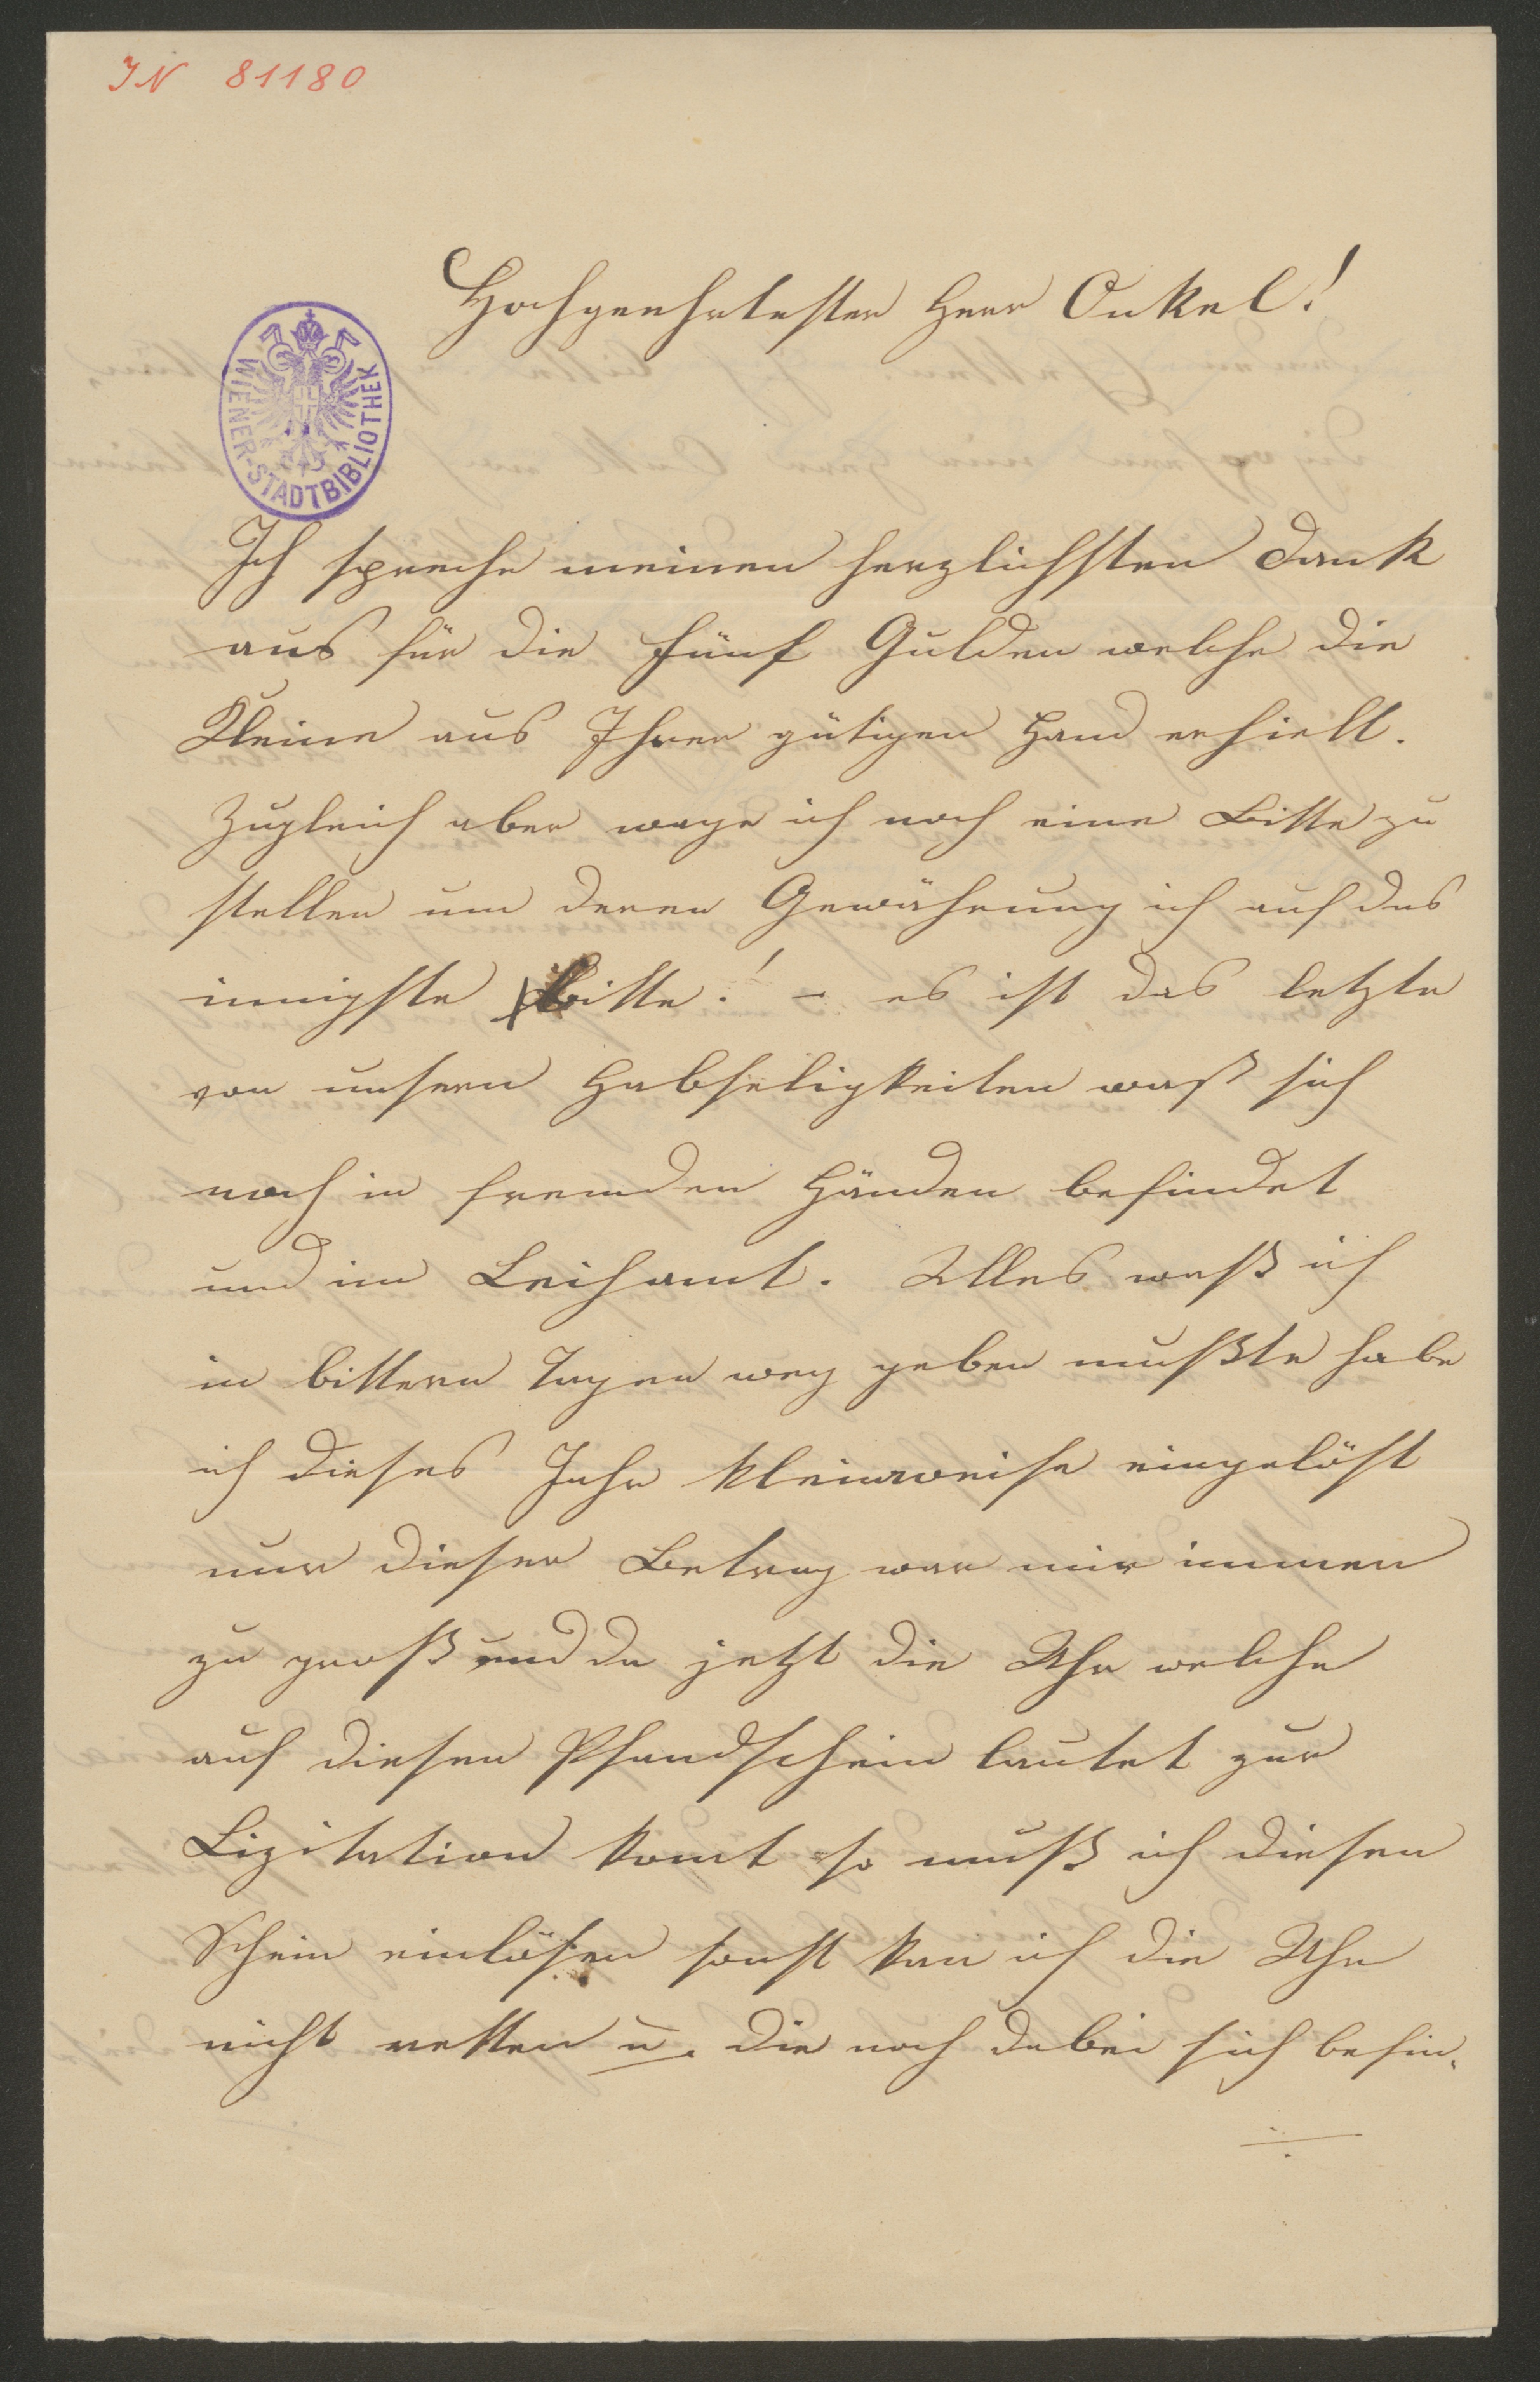 IN 81180
Hochgeehrtester Herr Onkel!
WIENER-STADTBIBLIOTHEK
Ich spreche meinen herzlichsten Dank
aus für die fünf Gulden welche die
Kleine aus Ihrer gütigen Hand erhielt.
Zugleich aber wage ich noch eine Bitte zu
stellen um deren Gewährung ich auf das
innigste bitte! – es ist das letzte
von unsern Habseligkeiten waß sich
noch in fremden Händen befindet
und im Leihamt. Alles waß ich
in bittern Tagen weg geben mußte habe
ich dieses Jahr kleinweise eingelöst
nur dieser Betrag war mir immer
zu groß und da jetzt die Uhr welche
auf diesen Pfandschein lautet zur
Lizitation komt so muß ich diesen
Schein einlösen sonst kan ich die Uhr
nicht retten u. die noch dabei sich befin-